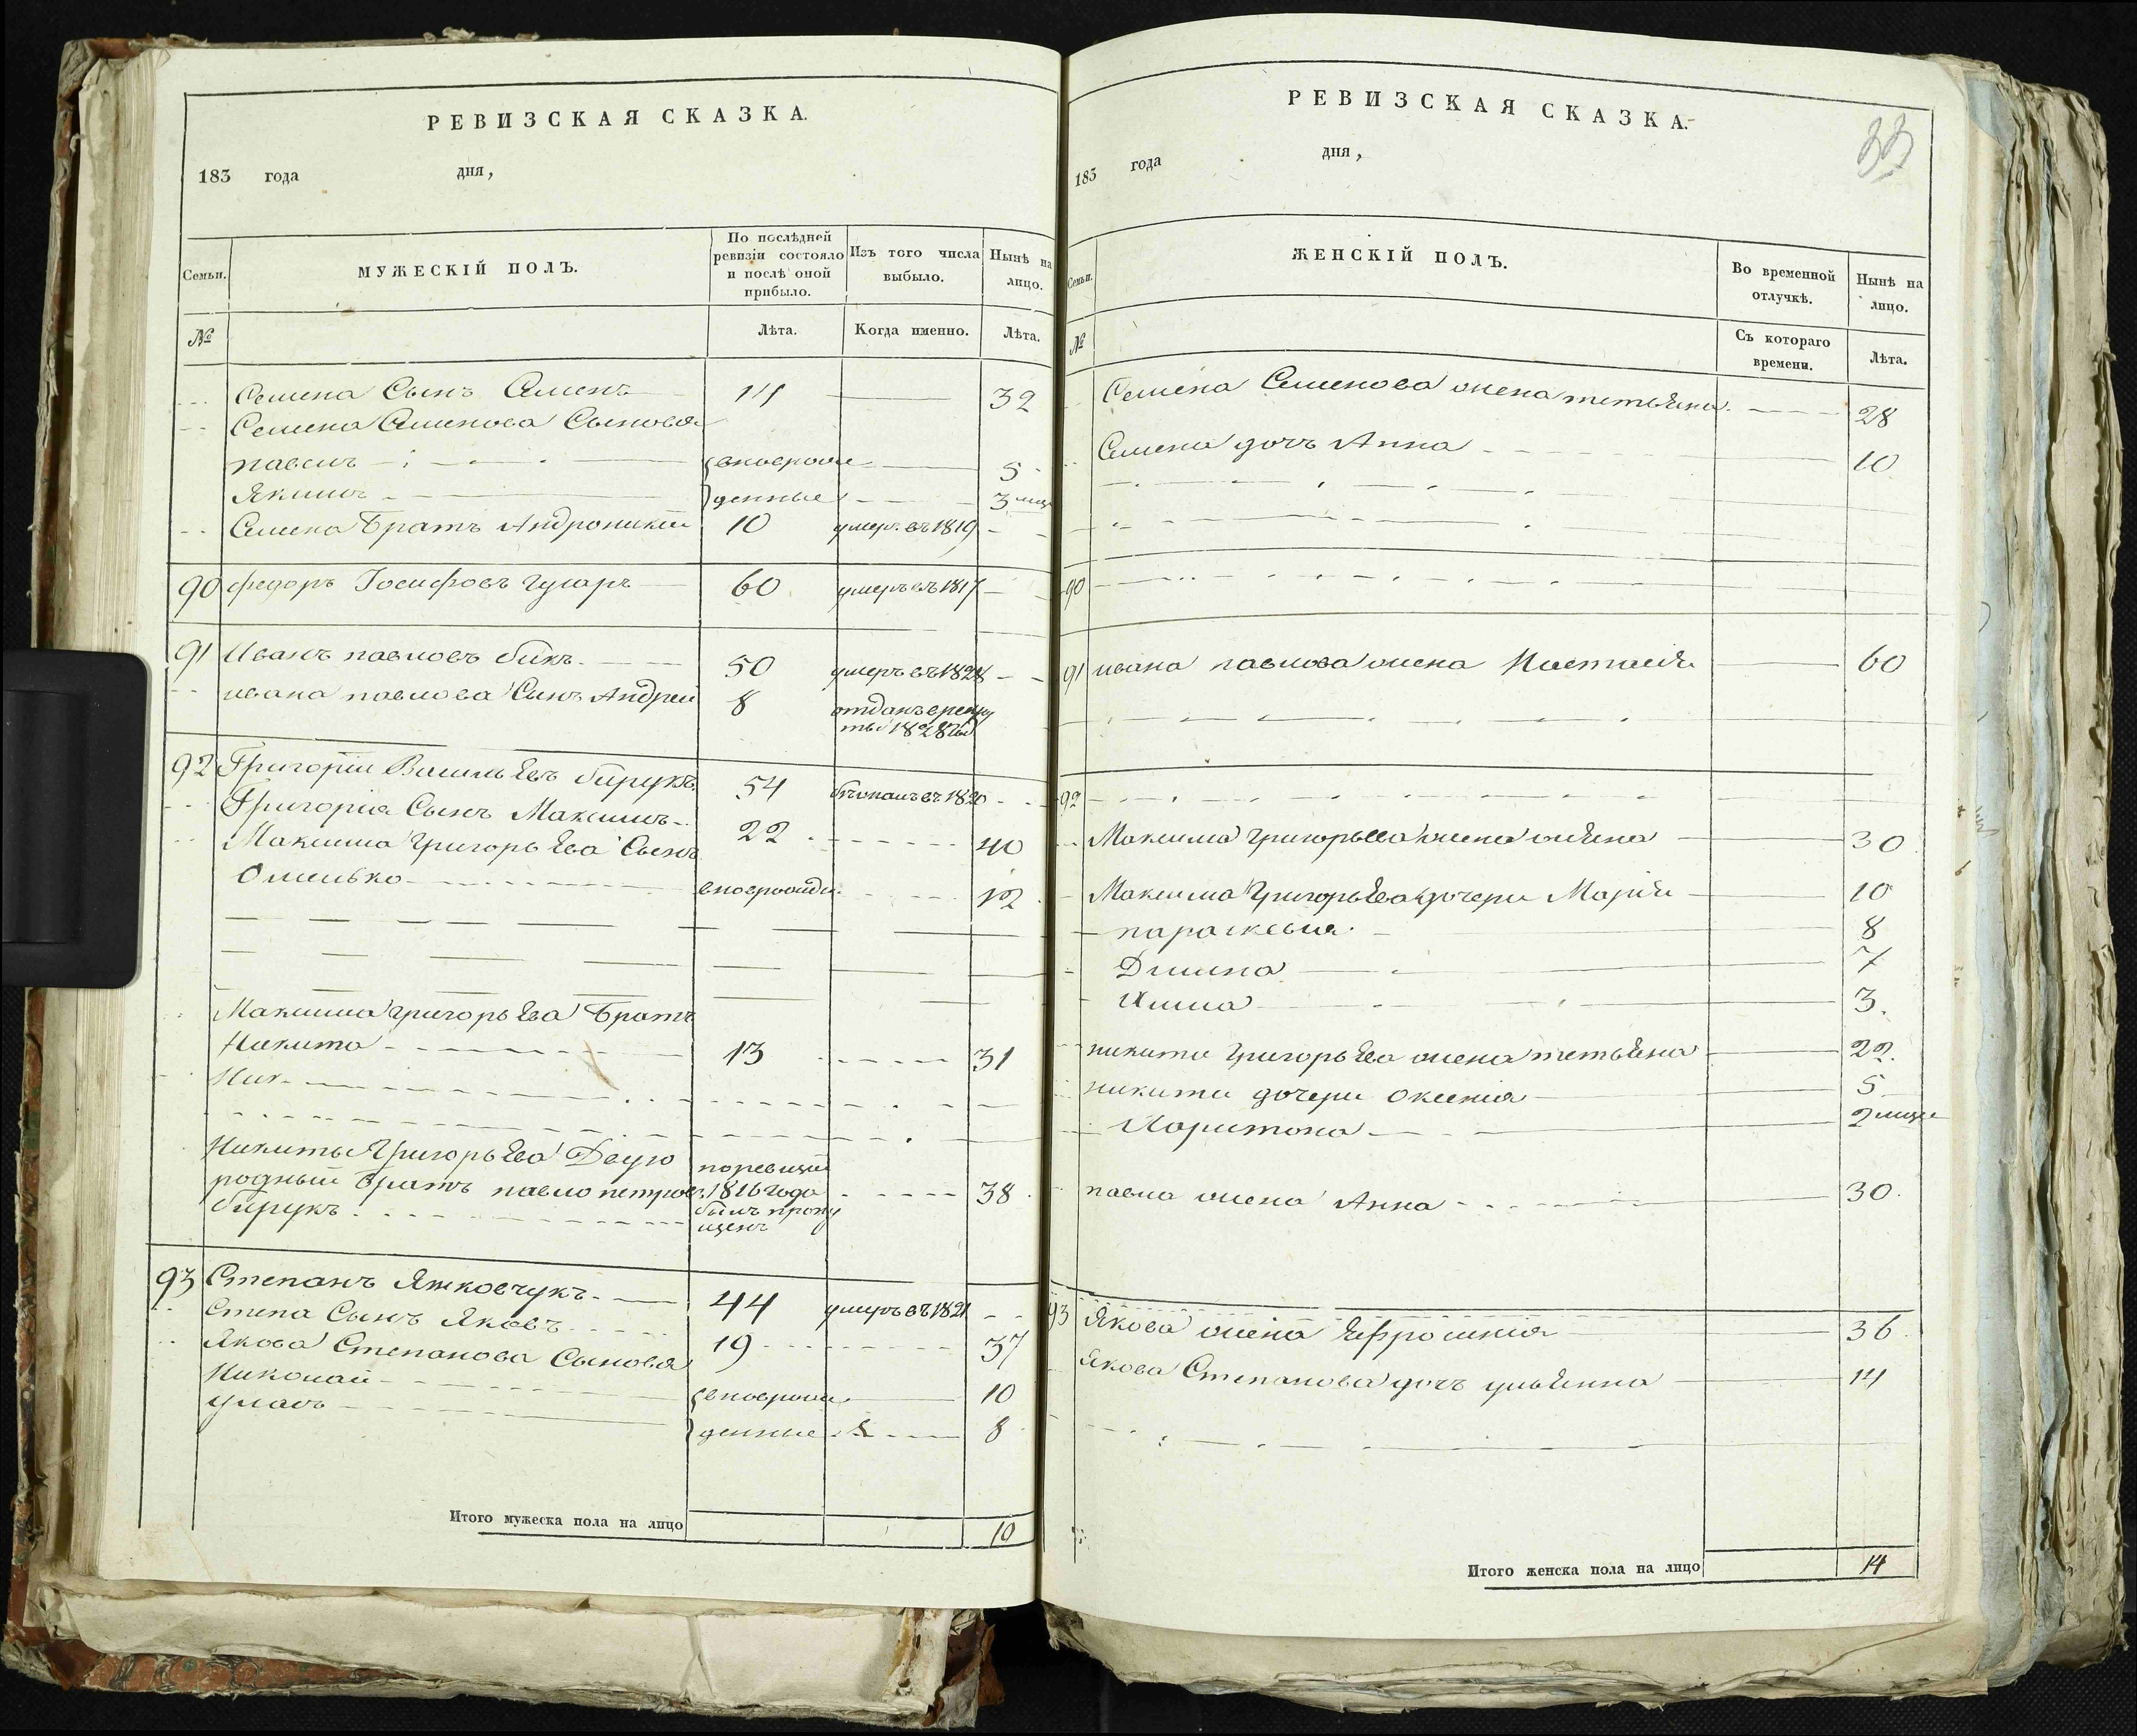 РЕВИЗСКАЯ СКАЗКА.
183 года дня,
Семьи. МУЖЕСКІЙ ПОЛЪ. По послѣдней ревизіи состояло и послѣ оной прибыло. Изъ того числа выбыло. Нынѣ на лицо.
№ Лѣта. Когда именно. Лѣта.
Семена Сынъ Семенъ 14 32
Семена Семенова Сыновья
павелъ (вноврож 5
Якимъ денные 3 мце
Семена Братъ Андроникій 10 умер. въ 1819
90 федоръ Іосифовъ 60 умеръ въ 1817
91 Иванъ павловъ бикъ 50 умеръ въ 1828
ивана павлова Сынъ Андрей 8 отданъ в рекру
ты 1828 год
92 Григорій Васильевъ бирукъ 54 въ 1820
Григорія Сынъ Максимъ 22 40
Максима Григорьева Сынъ
Омелько вноврожде 12
Максима Григорьева Братъ
Никита 13 31
Ник
Никиты Григорьева Двую поревизіи
родный братъ павло петровъ 1816 года 38
бирукъ былъ пропу
щенъ
93 Степанъ Яжковчукъ 44 умеръ въ 1821
Степа Сынъ Яковъ 19 37
Якова Степанова Сыновья
Николай (вноврож 10
уласъ денные 8
Итого мужеска пола на лицо 10
РЕВИЗСКАЯ СКАЗКА.
33
183 года дня,
Семьи. ЖЕНСКІЙ ПОЛЪ. Во временной отлучкѣ. Нынѣ на лицо.
№ Съ котораго времени. Лѣта.
Семена Семенова жена татьяна 28
Семена дочь Анна 10
90
91 ивана павлова жена Настасія 60
92
Максима Григорьева жена 30
Максима Григорьева дочери Марія 10
параскевия 8
7
3.
никиты Григорьева жена татьяна 22.
никиты дочери Оксенія 5
Харитона 2 мце
павла жена Анна 30.
93 Якова жена Ефросинія 36.
Якова Степанова дочь ульянна 14
Итого женска пола на лицо 14